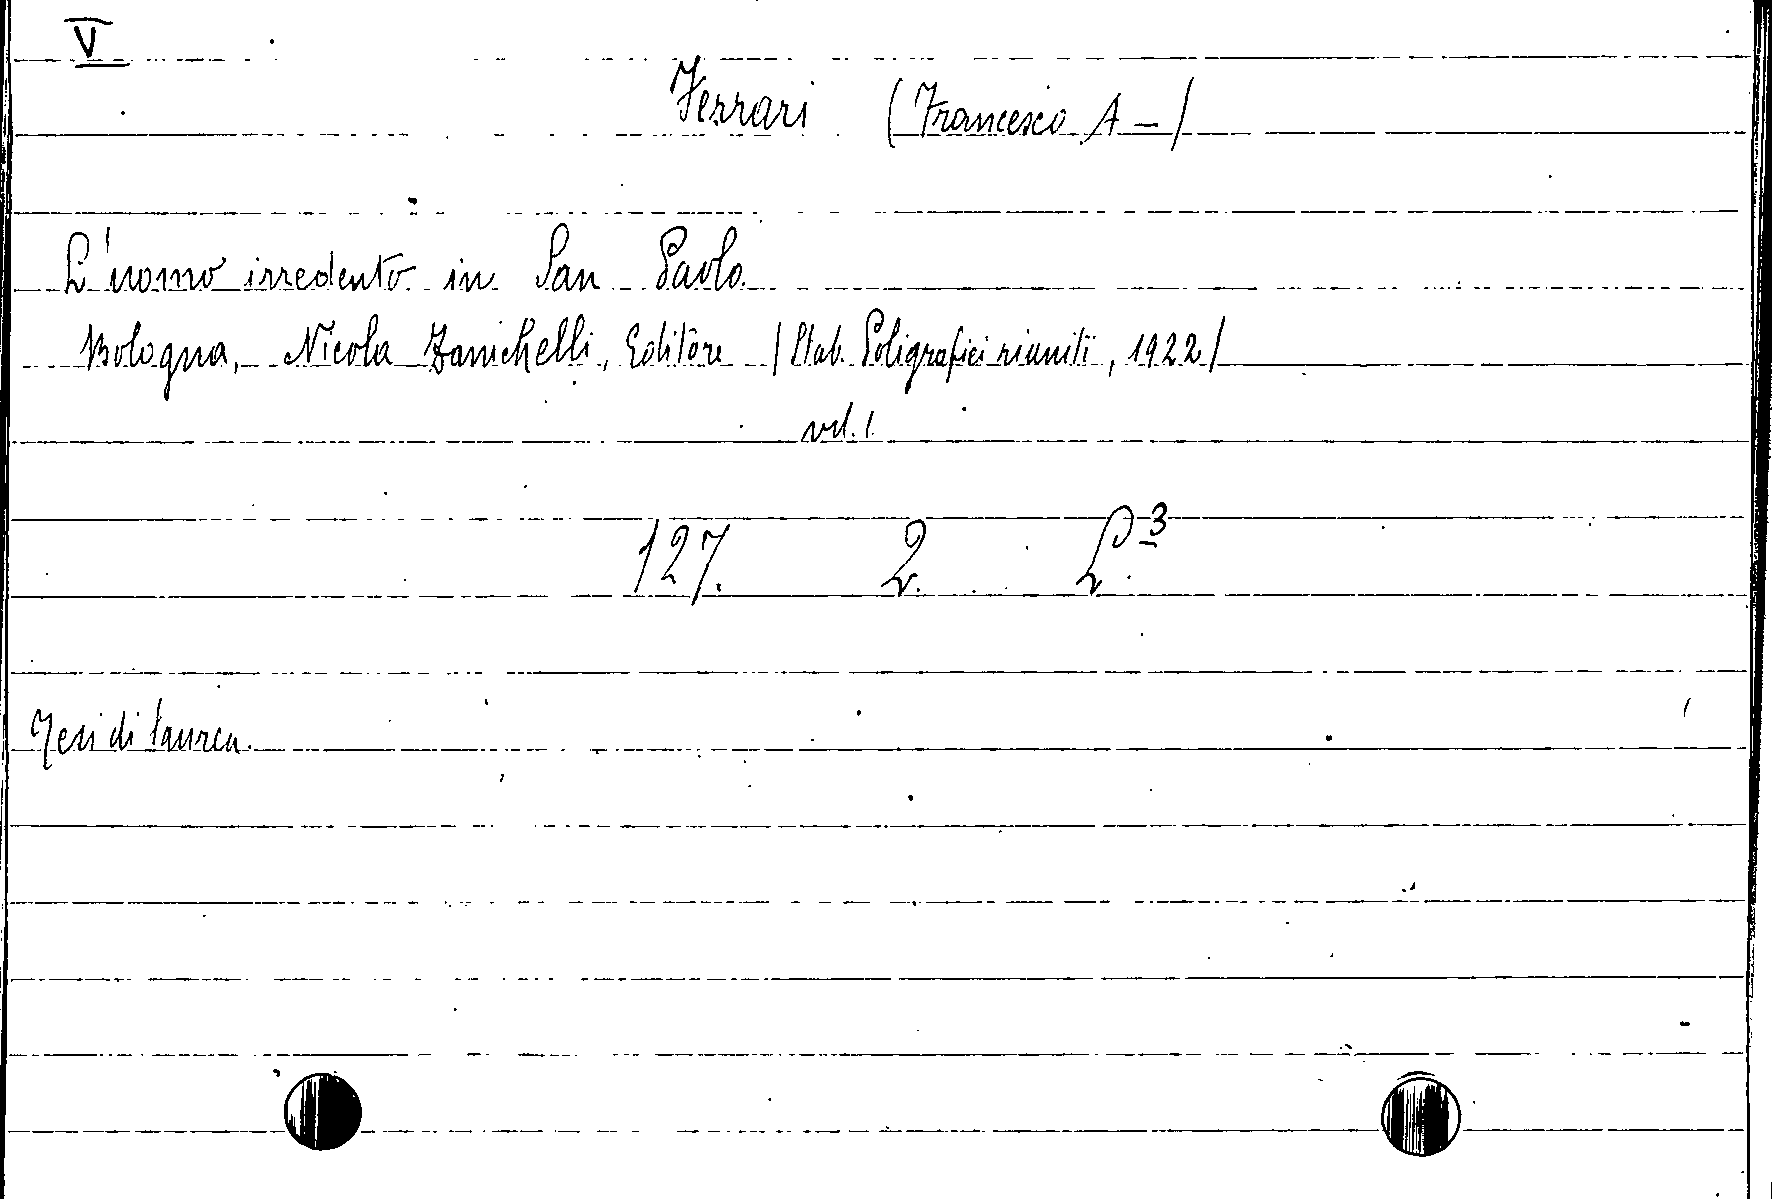 V
Ferrari (Francesco A –)
L'uomo irredento in San Paolo.
Bologna, Nicola Zanichelli, Editore (Stab. Poligrafici riuniti, 1922)
vol. 1.
127. 2. L.3
Tesi di laurea.